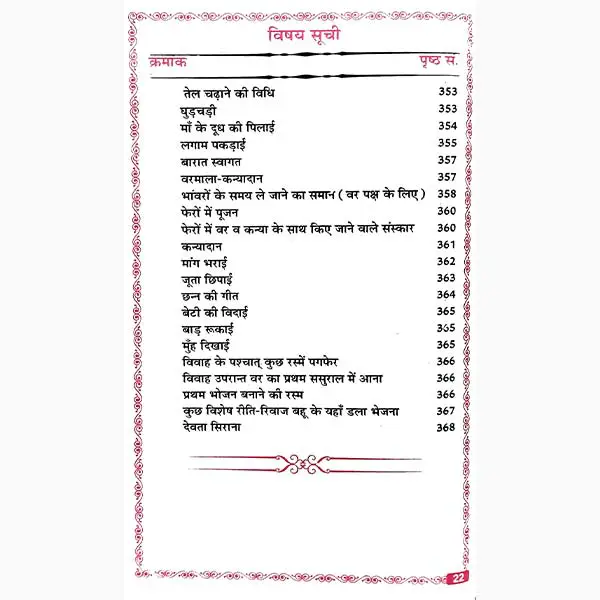 विषय सूची
क्रमांक पृष्ठ स.
तेल चढ़ाने की विधि 353
घुड़चड़ी 353
माँ के दूध की पिलाई 354
लगाम पकड़ाई 355
बारात स्वागत 357
वरमाला-कन्यादान 357
भांवरों के समय ले जाने का समान ( वर पक्ष के लिए ) 358
फेरों में पूजन 360
फेरों में वर व कन्या के साथ किए जाने वाले संस्कार 360
कन्यादान 361
मांग भराई 362
जूता छिपाई 363
छन्न की गीत 364
बेटी की विदाई 365
बाड़ रूकाई 365
मुँह दिखाई 365
विवाह के पश्चात् कुछ रस्में पगफेर 366
विवाह उपरान्त वर का प्रथम ससुराल में आना 366
प्रथम भोजन बनाने की रस्म 366
कुछ विशेष रीति-रिवाज बहू के यहाँ डला भेजना 367
देवता सिराना 368
22